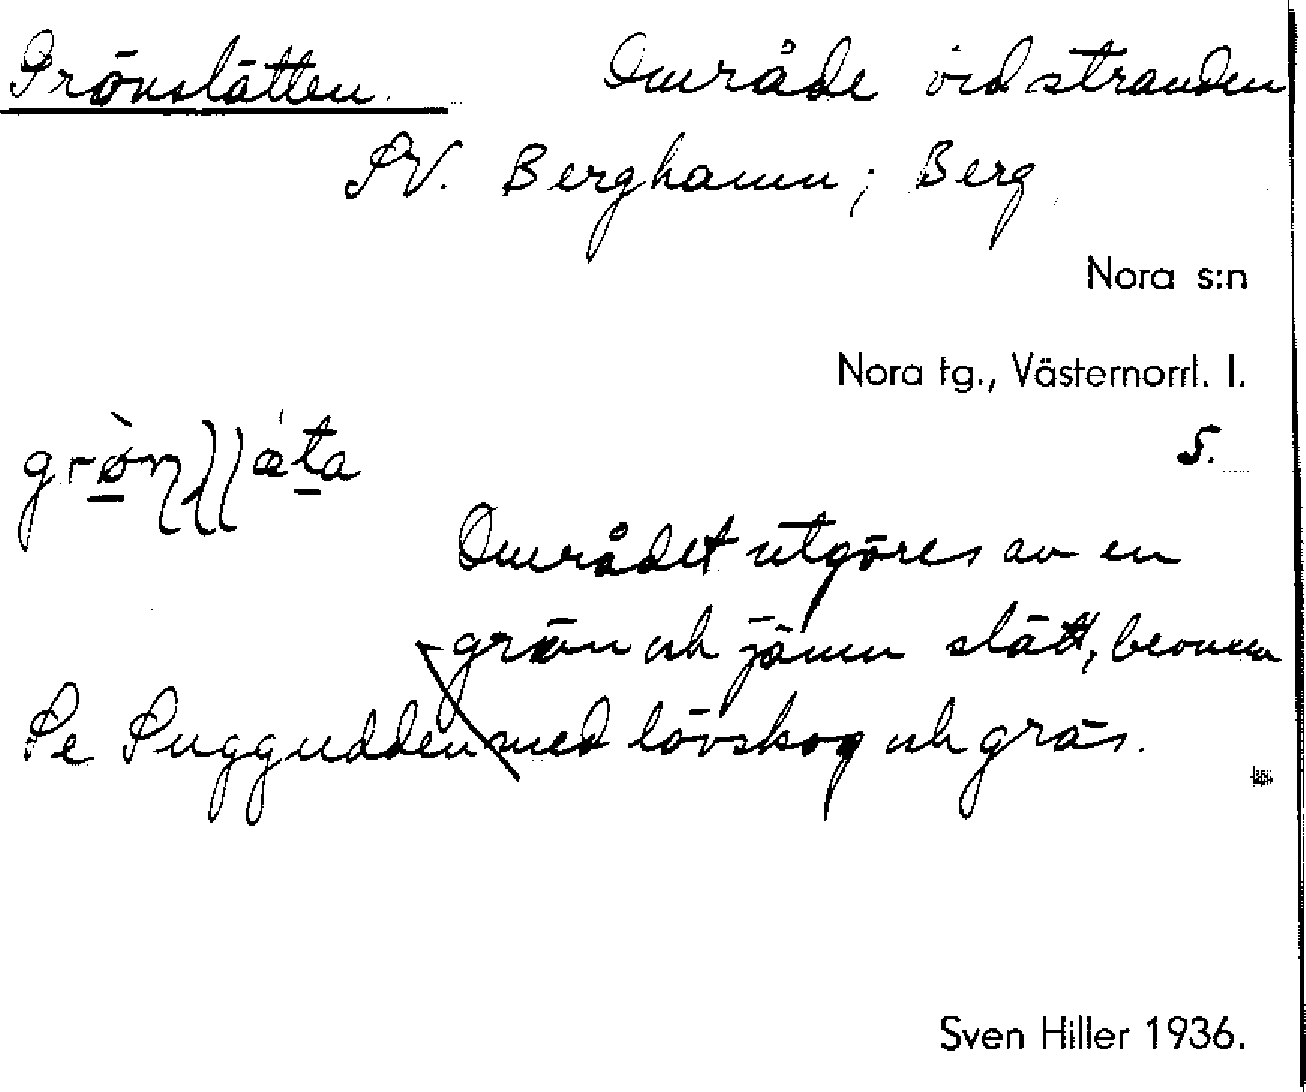 Grönslätten. Område vid stranden
SV. Berghamn; Berg
Nora s:n
Nora tg., Västernorrl. l.
5.
Området utgöres av en
grön och jämn slätt, bevuxen
Se Suggudden med lövskog och gräs.
Sven Hiller 1936.